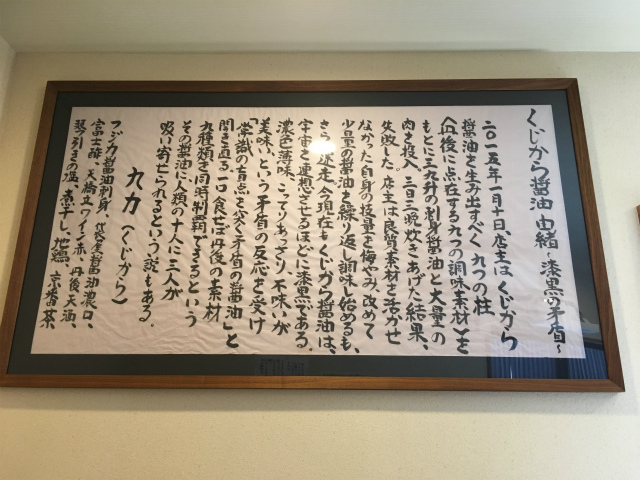 くじから醤油 由緒 ~漆黒の矛盾~
二〇一五年一月十日、店主はくじから
醤油を生み出すべく 九つの柱
(丹後に点在する九つの調味素材)を
もとに三九升の刺身醤油と大量の
肉を投入 三日三晩炊きあげた結果、
失敗した。店主は良質素材を活かせ
なかった自身の技量を悔やみ、改めて
少量の醤油を繰り返し調味し始めるも、
さらに迷走。今現在もくじから醤油は、
宇宙を連想させるほどに漆黒である。
濃色薄味、こってりあっさり、不味いが
美味いという矛盾の反応を受け
「常識の盲点を突く矛盾の醤油」と
開き直る。一口食せば丹後の素材
九種類を同時制覇できるという
その醤油に人類の十人に三人が
吸い寄せられるという説もある。
九力(くじから)
フジカ醤油刺身、醤油濃口、
富士酢、天橋立ワイン赤、丹後天酒、
琴引きの塩、煮干し、地鶏、京番茶